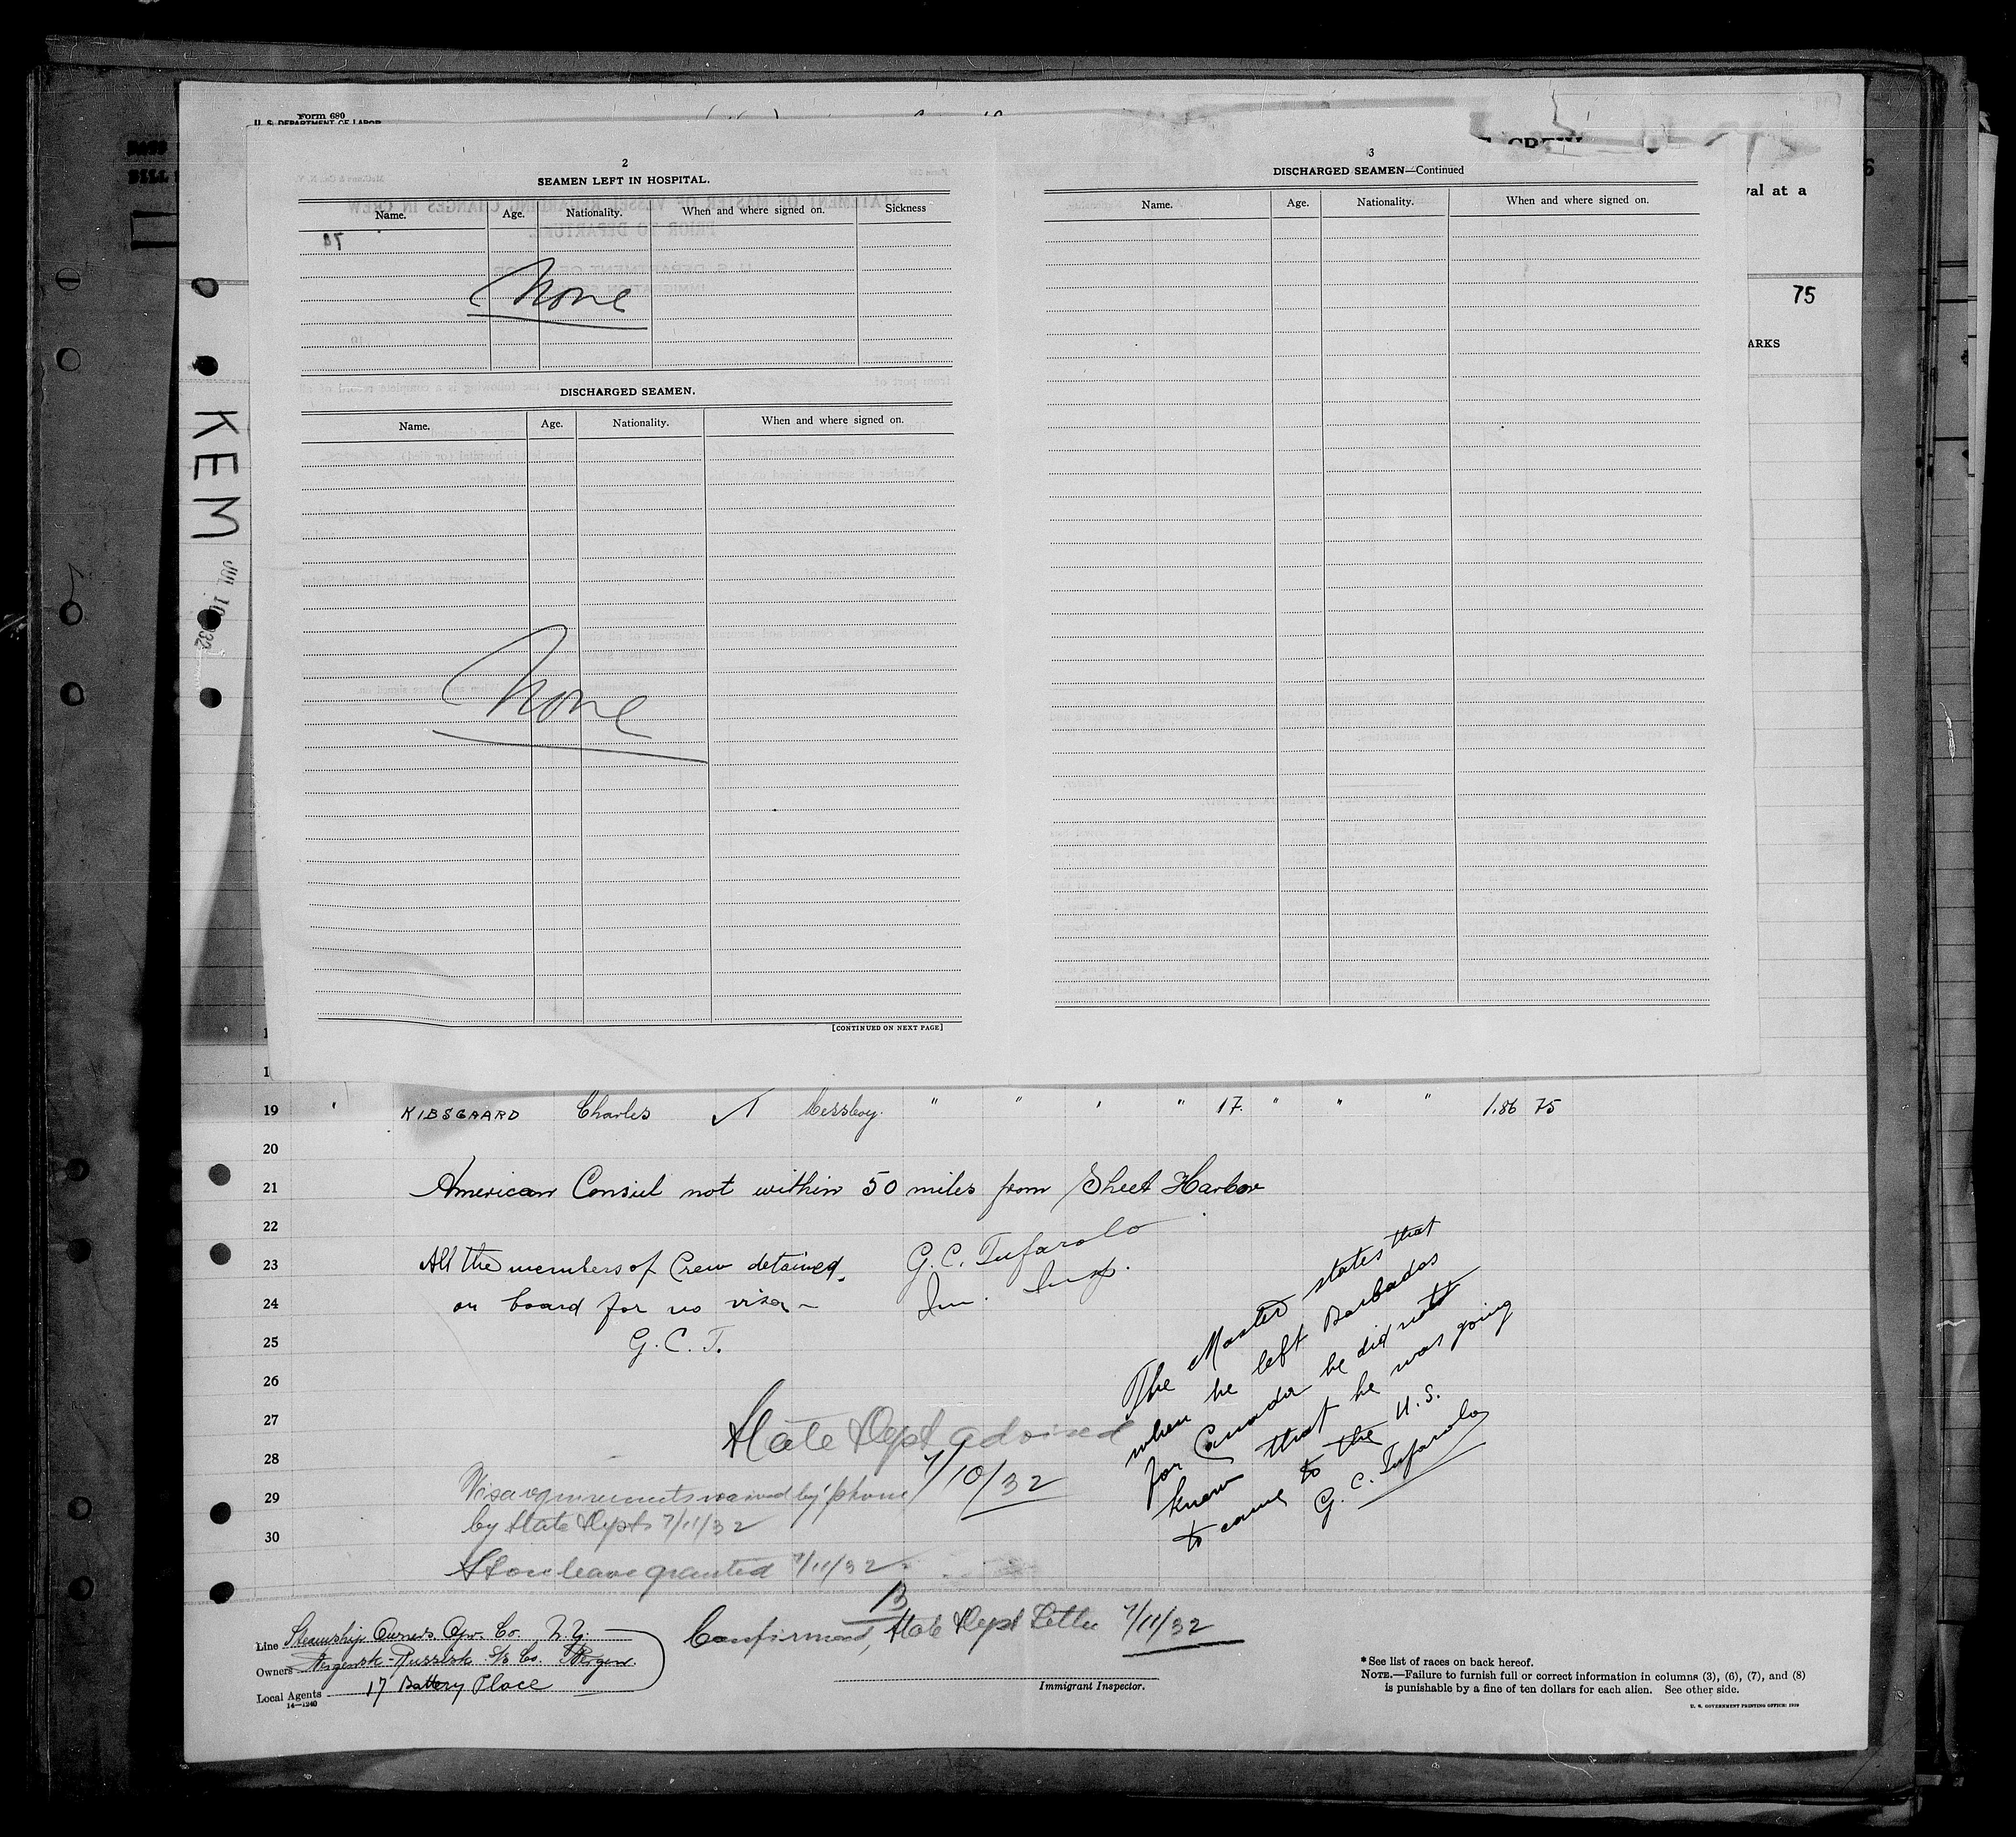 Form 680
U. S. DEPARTMENT OF LABOR
CREW
6
val at a
75
ARKS
KEM
JUL 10 32
2
SEAMEN LEFT IN HOSPITAL.
Name. Age. Nationality. When and where signed on. Sickness
74
None
DISCHARGED SEAMEN.
Name. Age. Nationality. When and where signed on.
None
[CONTINUED ON NEXT PAGE]
3
DISCHARGED SEAMEN—Continued
Name. Age. Nationality. When and where signed on.
19 KIBSGAARD Charles ✓ Messboy. " " " " 17. " " " 1.86 75
20
21 American Consul not within 50 miles from Sheet Harbor
22
23 All the members of Crew detained G. C. Tufarolo
24 on board for no visa - Im. Insp.
25 G. C. T.
26
27 State Dept advised
28 7/10/32
29 Visa requirements waived by 'phone
by State Dept 7/11/32
30
Shore leave granted 7/11/32
The Master states that
when he left Barbados
for Canada he did not
know that he was going
to come to the U.S.
G. C. Tufarolo
B
Confirmed, State Dept Letter 7/11/32
Line Steamship Owners Opr. Co. N.Y.
Owners Bergensk-Russisk S/S Co. Bergen.
Local Agents 17 Battery Place
14—1240
Immigrant Inspector.
* See list of races on back hereof.
NOTE.—Failure to furnish full or correct information in columns (3), (6), (7), and (8)
is punishable by a fine of ten dollars for each alien. See other side.
U. S. GOVERNMENT PRINTING OFFICE: 1930